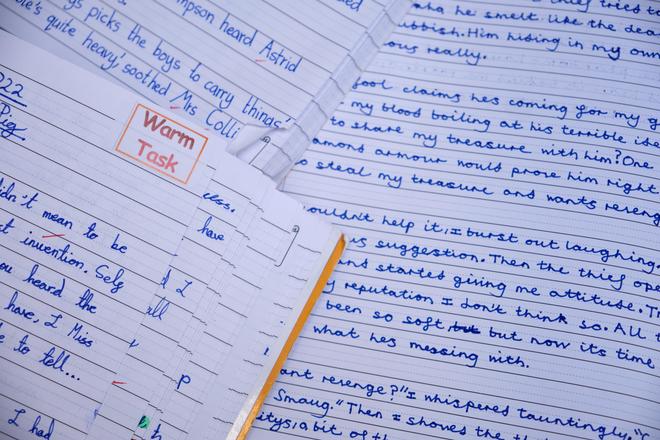 mpson heard Astrid
picks the boys to carry things'
quite heavy,' soothed Mrs Colli
022
Pig.
Warm
Task
didn't mean to be
invention. Sely
ou heard the
have, I Miss
e to tell...
I had
less.
have
I
p
thief tried to
aha he smelt like the dea
ubbish. Him hiding in my own
ous really.
fool claims hes coming for my g
my blood boiling at his terrible ide
to share my treasure with him? One
amond armour would prove him right
o steal my treasure and wants reveng
ouldn't help it, i burst out laughing.
is suggestion. Then the thief ope
and started giving me attitude. Th
y reputation I don't think so. All t
been so soft but but now it's time
what hes messing with.
ant revenge?" I whispered tauntingly. "
Smaug." Then I shows the
itys, a bit of th